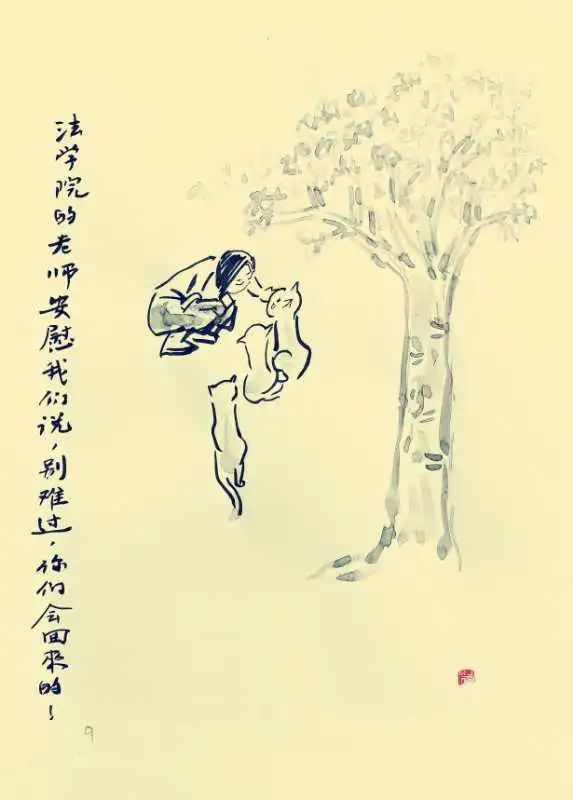 法学院的老师安慰我们说，别难过，你们会回來的！
9